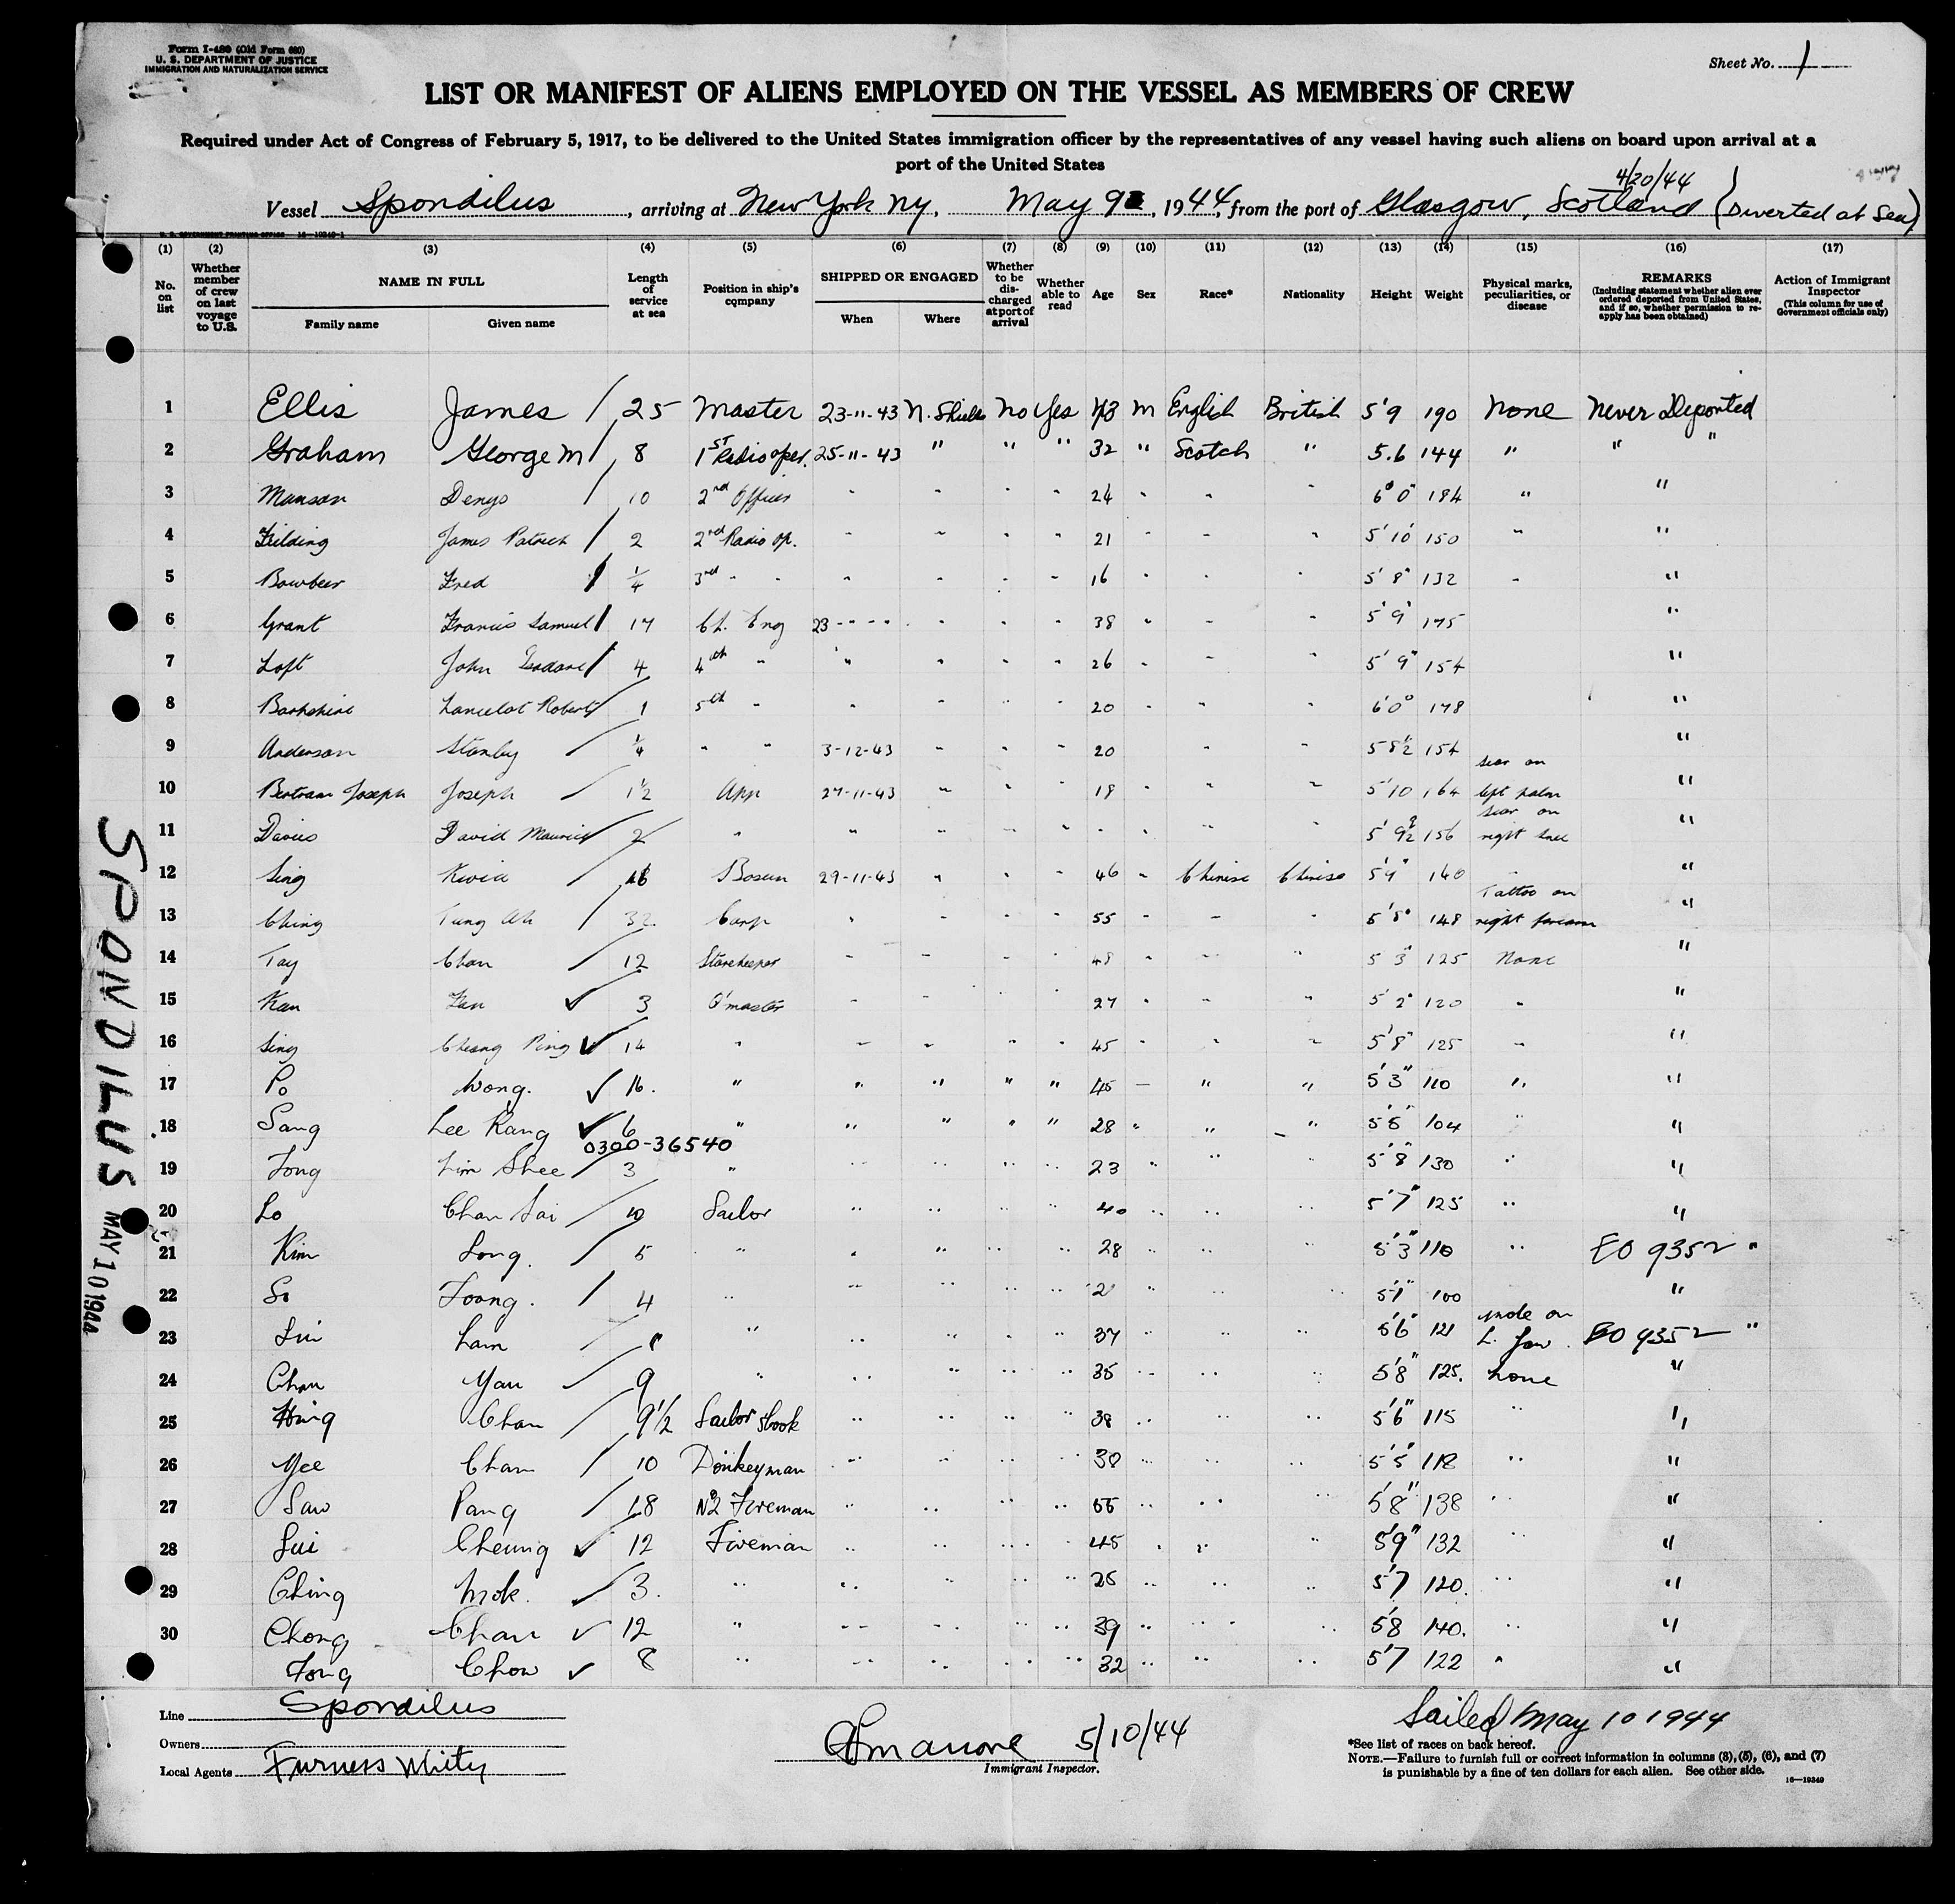 Form I-489 (Old Form 680)
U. S. DEPARTMENT OF JUSTICE
IMMIGRATION AND NATURALIZATION SERVICE
Sheet No. 1
LIST OR MANIFEST OF ALIENS EMPLOYED ON THE VESSEL AS MEMBERS OF CREW
Required under Act of Congress of February 5, 1917, to be delivered to the United States immigration officer by the representatives of any vessel having such aliens on board upon arrival at a
port of the United States
4/20/44
Vessel Spondilus, arriving at New York NY, May 9, 1944, from the port of Glasgow, Scotland (Diverted at Sea)
(1) (2) (3) (4) (5) (6) (7) (8) (9) (10) (11) (12) (13) (14) (15) (16) (17)
No. on list
Whether member of crew on last voyage to U.S.
NAME IN FULL
Family name
Given name
Length of service at sea
Position in ship's company
SHIPPED OR ENGAGED
When
Where
Whether to be discharged at port of arrival
Whether able to read
Age
Sex
Race*
Nationality
Height
Weight
Physical marks, peculiarities, or disease
REMARKS
(Including statement whether alien ever ordered deported from United States, and if so, whether permission to re-apply has been obtained)
Action of Immigrant Inspector
(This column for use of Government officials only)
1 Ellis James / 25 Master 23-11-43 N. Shields No Yes 43 M English British 5'9 190 None Never Deported
2 Graham George M / 8 1st Radio oper. 25-11-43 " " " 32 " Scotch " 5.6 144 " " "
3 Munson Denys / 10 2nd Officer " " " " 24 " " " 6'0" 184 " "
4 Fielding James Patrick / 2 2nd Radio Op. " " " " 21 " " " 5'10 150 " "
5 Bowbeer Fred / 1/4 3rd " " " " " " 16 " " " 5'8" 132 " "
6 Grant Francis Samuel / 17 Ch. Eng 23 " " " " 38 " " " 5'9" 175 "
7 Loft John / 4 4th " " " " " 26 " " " 5'9" 154 "
8 Lancelot Robert / 1 5th " " " " " 20 " " " 6'0" 178 "
9 Anderson Stanley / 1/4 " " 3-12-43 " " " 20 " " 5 8 1/2 154 "
10 Bertram Joseph Joseph / 1 1/2 App 27-11-43 " " " 18 " " " 5'10 164 scar on left palm "
11 Davies David Maurice / 2 " " " " " " " " " 5' 9 1/2 156 scar on right knee "
12 Sing Kwia / 16 Bosun 29-11-43 " " " 46 " Chinese Chinese 5'4" 140 " "
13 Ching Tung Ah / 32 Carp " " " " 55 " " " 5'8" 148 Tattoo on right forearm "
14 Tay Chan / 12 Storekeeper " " " " 48 " " " 5 3" 125 None "
15 Kan Fan ✓ 3 Q'master " " " " 27 " " " 5'2" 120 " "
16 Sing Cheang Ping ✓ 14 " " " " " 45 " " " 5'8" 125 " "
17 Po Wong. ✓ 16. " " " " " 45 " " " 5'3" 110 " "
18 Sang Lee Kang ✓ 6 " " " " " 28 " " " 5'5" 104 " "
0300-36540
19 Tong Lim Shee / 3 " " " " " 23 " " " 5'8" 130 " "
20 Lo Chan Sai / 10 Sailor " " " " 40 " " " 5'7" 125 " "
21 Kim Song. / 5 " " " " " 28 " " " 5'3" 110 " EO 9352 "
22 So Toong. / 4 " " " " " " " " 5'1" 100 "
23 Lui Lam / " " " " " 37 " " " 5'6" 121 mole on L. Jaw. EO 9352 "
24 Chan Yau / 9 " " " " " 35 " " " 5'8" 125. none "
25 Hing Chan / 9 1/2 Sailor's Cook " " " " 38 " " " 5'6" 115 " "
26 Yee Chan / 10 Donkeyman " " " " 30 " " " 5'5" 118 " "
27 Saw Pang / 18 No 2 Fireman " " " " 55 " " " 5'8" 138 " "
28 Lui Cheung ✓ 12 Fireman " " " " 45 " " " 5'9" 132 " "
29 Ching Mok. / 3. " " " " " 25 " " " 5'7 120. " "
30 Chong Chan ✓ 12 " " " " " 39 " " " 5'8 140. " "
Tong Chow ✓ 8 " " " " " 32 " " " 5'7 122 " "
SPONDILUS MAY 10 1944
Line Spondilus
Owners
Local Agents Furness Withy
5/10/44
Immigrant Inspector.
Sailed May 10 1944
*See list of races on back hereof.
NOTE.—Failure to furnish full or correct information in columns (3), (5), (6), and (7)
is punishable by a fine of ten dollars for each alien. See other side.
16—19349